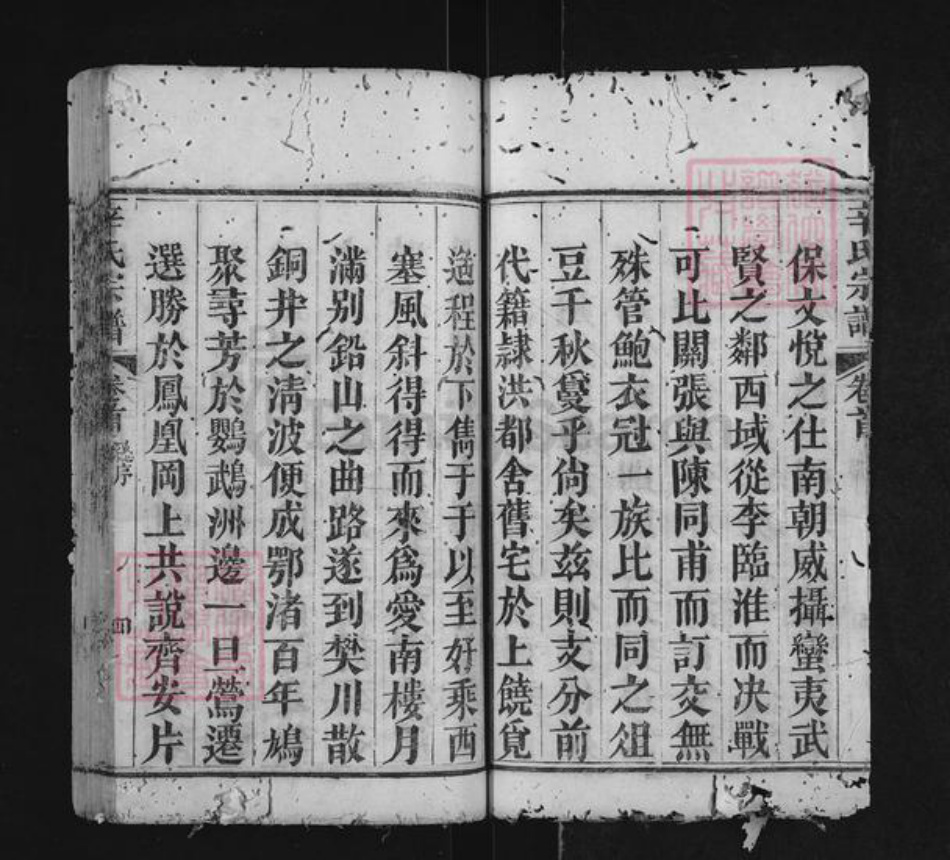 辛氏宗譜 卷首
保文悅之仕南朝威攝蠻夷武
賢之鄰西域從李臨淮而決戰
可比關張與陳同甫而訂交無
殊管鮑衣冠一族比而同之俎
豆千秋戞乎尙矣兹則支分前
代籍隷洪都舍舊宅於上饒覓
遊程於下雋于于以至好乘西
塞風斜得得而來爲愛南樓月
滿别鉛山之曲路遂到樊川散
銅井之淸波便成鄂渚百年鳩
聚尋芳於鸚鵡洲邊一旦鶯遷
選勝於鳳凰岡上共說齊安片
辛氏宗譜 卷首 序 四